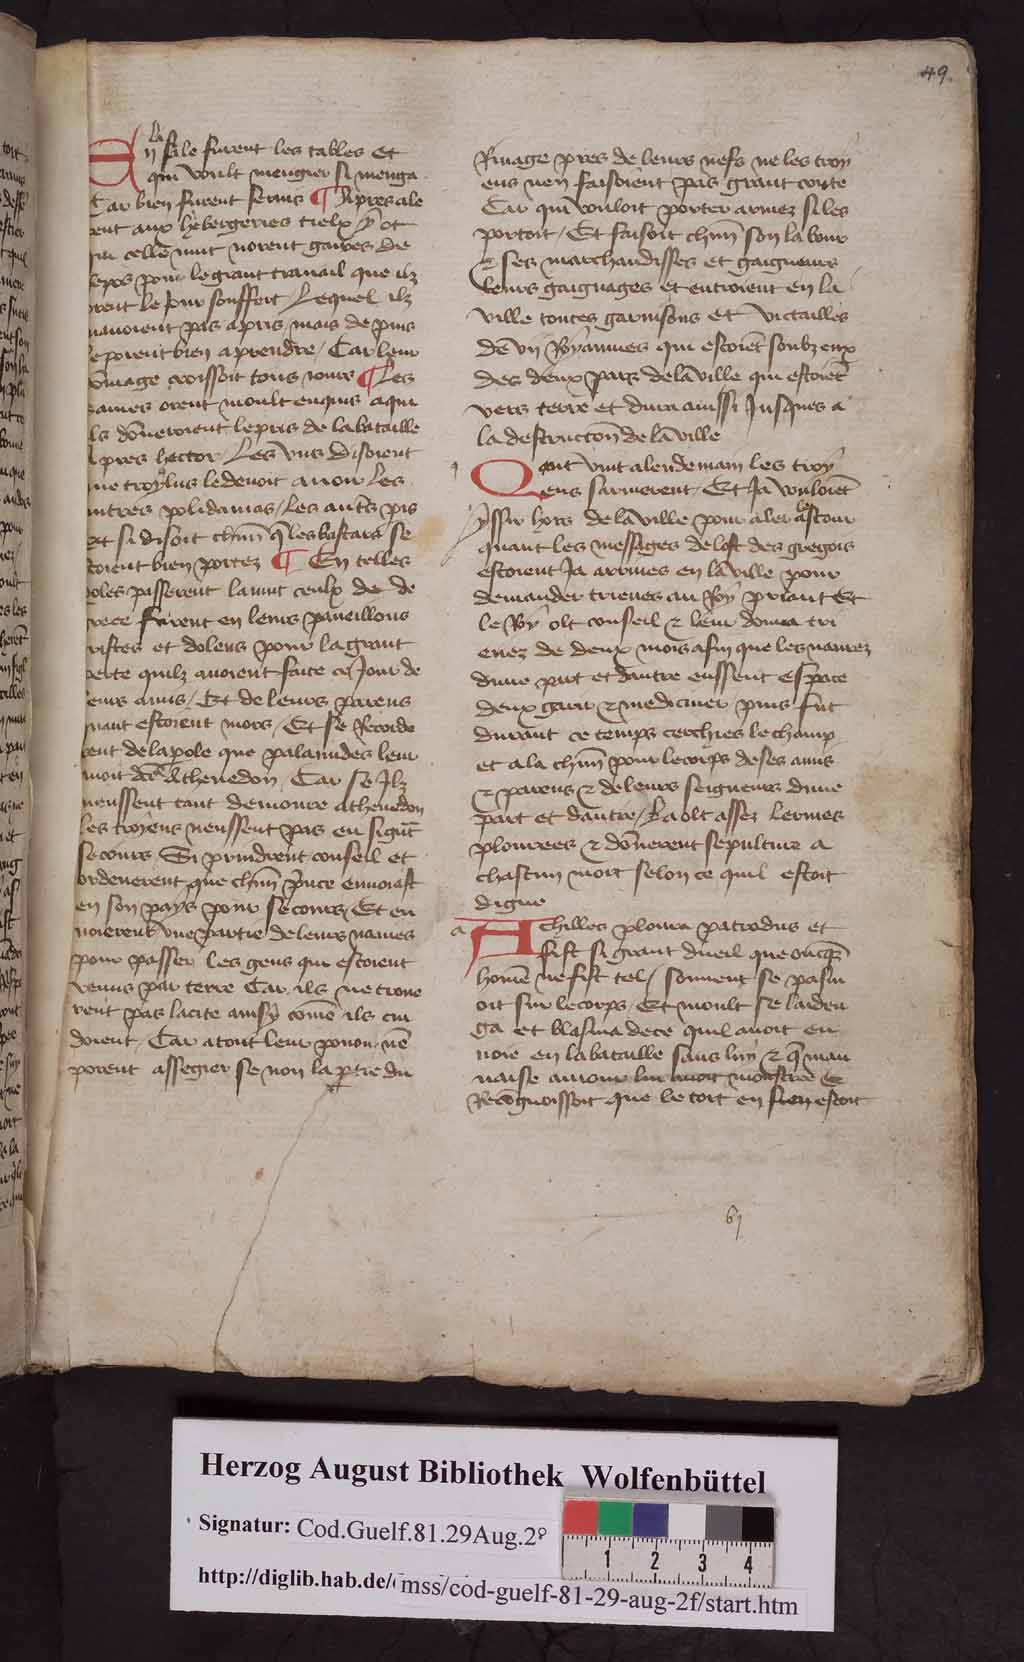 49.
En la sale furent les tables et
qui voult mengier si menga
Car bien furent seruis ¶ Apres ale
rent aux hebergeries tielx y ot
qui celle nuit norent gaires de
repos pour le grant trauail que ilz
orent le jour souffert / Lequel ilz
nauoient pas apris / mais de puis
le porent bien aprendre / Car leur
domage croissoit tous iours ¶ Les
dames orent moult enquis a qui
ils donneroient le pris de la bataille
Apres hector / Les vns disoient
que troylus le deuoit auoir Les
autres polidamas / Les autres pis
et si disoit chun que les bastars se
estoient bien portez ¶ En telles
paroles passerent la nuit ceulx de
grece furent en leurs paueillons
tristes et dolens pour la grant
perte quilz auoient faite ce Jour de
leurs amis / Et de leurs parens
quant estoient mors / Et se Recorde
rent de la parole que palamides leur
auoit dite a Athenedon / Car se Ilz
neussent tant demoure athenedon
les troyens neussent pas eu si grant
secours Si prindrent conseil et
ordenerent que chun prince enuoiast
en son pays pour secours / Et en
uoierent vne partie de leurs naues
pour passer les gens qui estoient
venus par terre Car ils ne troue
rent pas la cite ainsy come ils cui
doient / Car a tout leur pouoir ne
porent assegier se non la partie du
Riuage pres de leurs nefs ne les troy
ens nen faisoient pas grant conte
Car qui vouloit porter armez si les
portoit / Et faisoit chun son labour
& ses marchandisses et gaigneurs
leurs gaignages et entroient en la
ville toutes garnisons et victailles
de vij Royaumes qui estoient soubz eux
des deux pars de la ville qui estoient
vers terre et dura ainssi Jusques a
la destruction de la ville
Quant vint a lendemain les troy
ens sarmerent / Et Ja vouloient
yssir hors de la ville pour aler a lestour
quant les messages de lost des gregois
estoient Ja armes en la ville pour
demander trieues au Roy priant Et
le Roy olt conseil & leur donna tri
euez de deux mois afin que les naurez
dune part et dautre eussent espace
deux garir & mediciner puis fut
durant ce temps cerchies le champ
et ala chun pour le corps de ses amis
& parens & de leurs seigneurs dune
part et dautre / La olt assez lermes
plourees & donnerent sepulture a
chascun mort selon ce quil estoit
digne
a Achilles ploura patrodus et
fist si grant dueil que oncques
home ne fist tel / souuent se pasm
oit sur le corps / Et moult se laiden
ga et blasma de ce quil auoit en
uoie en la bataille sans luy & que mau
uaise amour lui auoit monstree &
Recognoissoit que le tort en sien estoit
61
Herzog August Bibliothek Wolfenbüttel
Signatur: Cod.Guelf.81.29Aug.2º
1 2 3 4
http://diglib.hab.de/mss/cod-guelf-81-29-aug-2f/start.htm